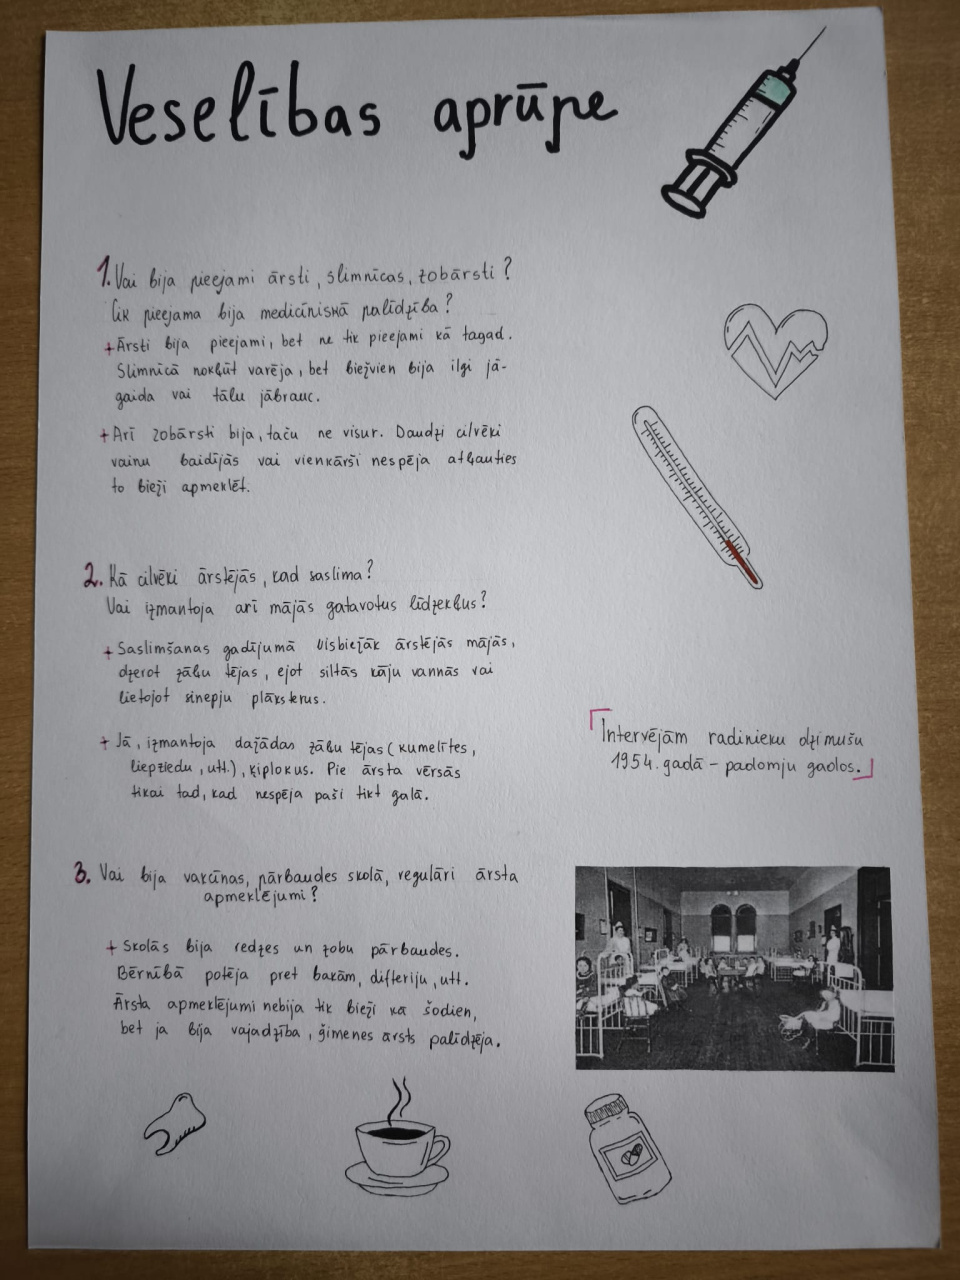 Veselības aprūpe
1. Vai bija pieejami ārsti, slimnīcas, zobārsti?
Cik pieejama bija medicīniskā palīdzība?
+ Ārsti bija pieejami, bet ne tik pieejami kā tagad.
Slimnīcā nokļūt varēja, bet biežvien bija ilgi jā-
gaida vai tālu jābrauc.
+ Arī zobārsti bija, taču ne visur. Daudzi cilvēki
vainu baidījās vai vienkārši nespēja atļauties
to bieži apmeklēt.
2. Kā cilvēki ārstējās, kad saslima?
Vai izmantoja arī mājās gatavotus līdzekļus?
+ Saslimšanas gadījumā visbiežāk ārstējās mājās,
dzerot zāļu tējas, ejot siltās kāju vannās vai
lietojot sinepju plāksterus.
+ Jā, izmantoja dažādas zāļu tējas (kumelītes,
liepziedu, utt.), ķiplokus. Pie ārsta vērsās
tikai tad, kad nespēja paši tikt galā.
Intervējām radinieku dzimušu
1954. gadā - padomju gados.
3. Vai bija vakcīnas, pārbaudes skolā, regulāri ārsta
apmeklējumi?
+ Skolās bija redzes un zobu pārbaudes.
Bērnībā potēja pret bakām, difteriju, utt.
Ārsta apmeklējumi nebija tik bieži kā šodien,
bet ja bija vajadzība, ģimenes ārsts palīdzēja.